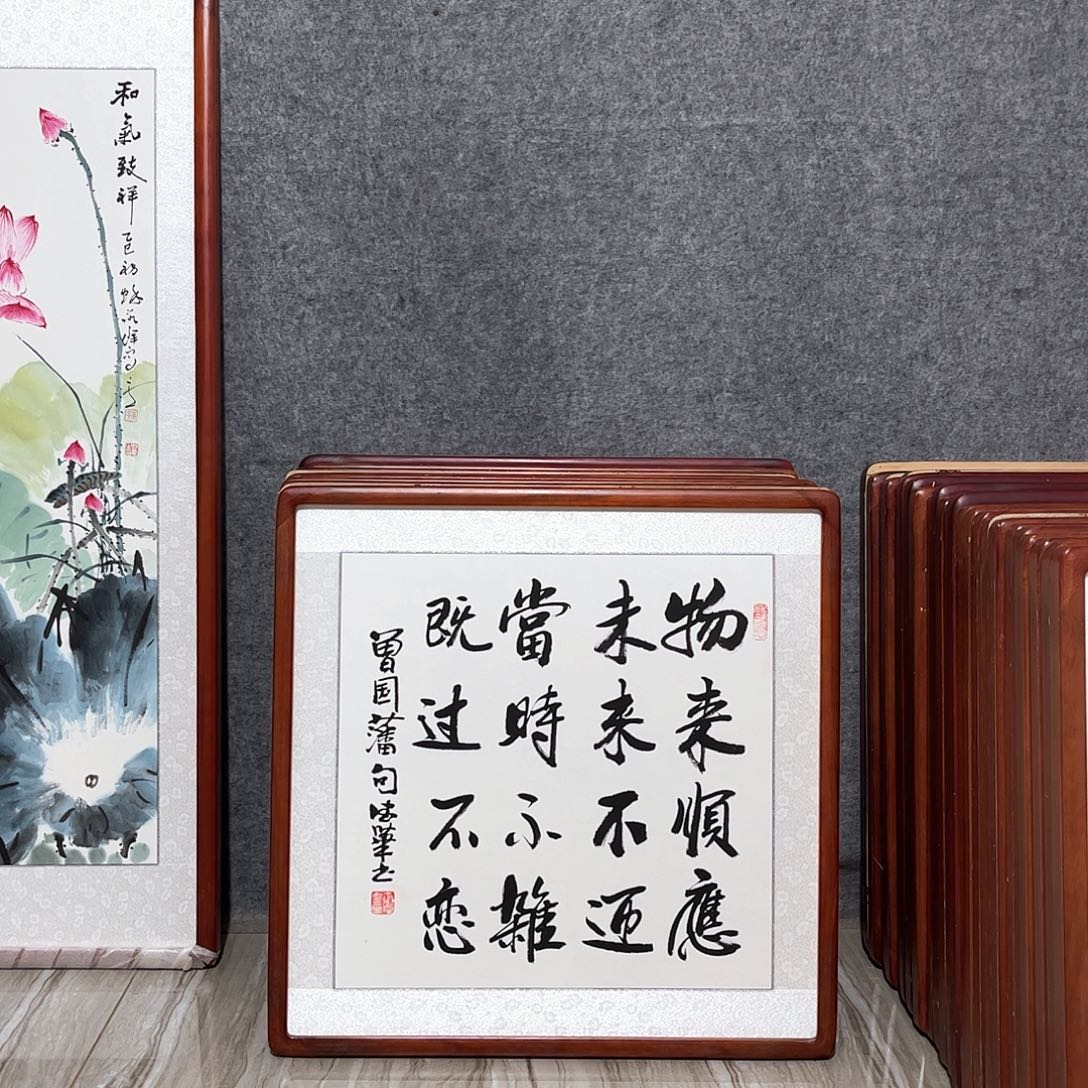 和氣致祥
物来順應
未来不迎
當時不雜
既过不恋
曾国藩句